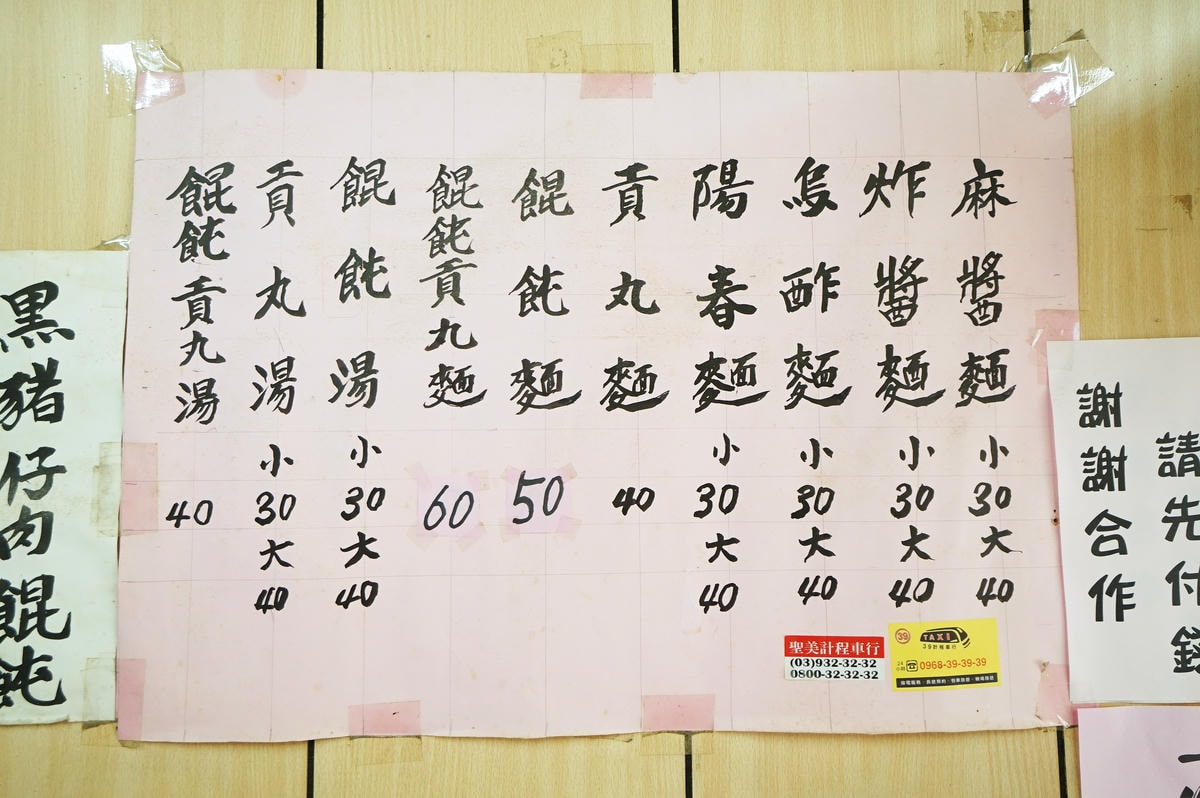 麻醬麵 小30 大40
炸醬麵 小30 大40
烏酢麵 小30 大40
陽春麵 小30 大40
貢丸麵 40
餛飩麵 50
餛飩貢丸麵 60
餛飩湯 小30 大40
貢丸湯 小30 大40
餛飩貢丸湯 40
聖美計程車行
(03)932-32-32
0800-32-32-32
39
TAXI
39計程車行
24小時
0968-39-39-39
請先付錢
謝謝合作
黑豬仔肉餛飩